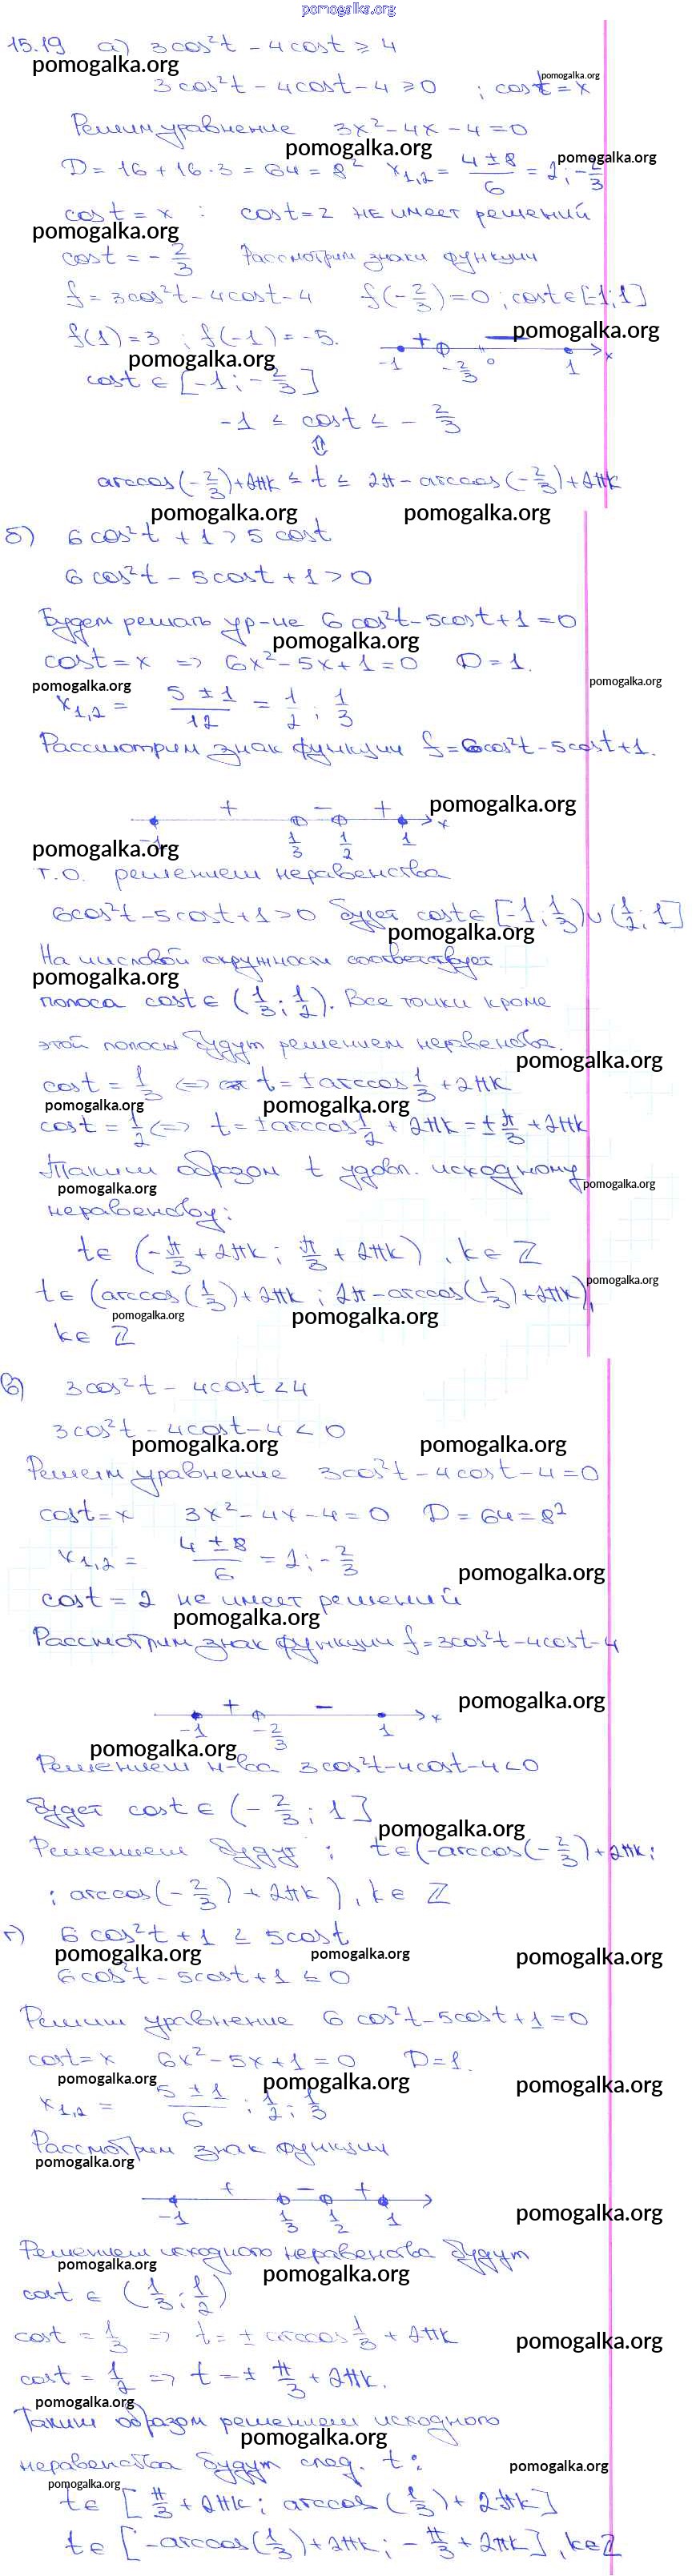 pomogalka.org
15.19 а) 3cos²t - 4cost ≥ 4
pomogalka.org
pomogalka.org
3cos²t - 4cost - 4 ≥ 0 ; cost = x
Решим уравнение 3x² - 4x - 4 = 0
pomogalka.org
pomogalka.org
D = 16 + 16·3 = 64 = 8² x₁,₂ = (4 ± 8)/6 = 2; -2/3
cost = x : cost = 2 не имеет решений
pomogalka.org
cost = -2/3 Рассмотрим знаки функции
f = 3cos²t - 4cost - 4 f(-2/3) = 0 ; cost ∈ [-1; 1]
f(1) = 3 ; f(-1) = -5.
pomogalka.org
pomogalka.org
+ −
-1 -2/3 0 1 x
cost ∈ [-1; -2/3]
-1 ≤ cost ≤ -2/3
⇕
arccos(-2/3) + 2πk ≤ t ≤ 2π - arccos(-2/3) + 2πk
pomogalka.org pomogalka.org
б) 6cos²t + 1 > 5cost
6cos²t - 5cost + 1 > 0
Будем решать ур-ие 6cos²t - 5cost + 1 = 0
pomogalka.org
cost = x => 6x² - 5x + 1 = 0 D = 1.
pomogalka.org pomogalka.org
x₁,₂ = (5 ± 1)/12 = 1/2; 1/3
Рассмотрим знак функции f = 6cos²t - 5cost + 1.
+ − +
pomogalka.org
-1 1/3 1/2 1 x
pomogalka.org
т.о. решением неравенства
6cos²t - 5cost + 1 > 0 будет cost ∈ [-1; 1/3) ∪ (1/2; 1]
pomogalka.org
На числовой окружности соответствует
pomogalka.org
полоса cost ∈ (1/3; 1/2). Все точки кроме
этой полосы будут решением неравенства.
pomogalka.org
cost = 1/3 <=> t = ± arccos 1/3 + 2πk
pomogalka.org pomogalka.org
cost = 1/2 <=> t = ± arccos 1/2 + 2πk = ± π/3 + 2πk
Таким образом t удовл. исходному
pomogalka.org pomogalka.org
неравенству:
t ∈ (-π/3 + 2πk; π/3 + 2πk), k ∈ Z
pomogalka.org
t ∈ (arccos(1/3) + 2πk; 2π - arccos(1/3) + 2πk),
pomogalka.org pomogalka.org
k ∈ Z
в) 3cos²t - 4cost < 4
3cos²t - 4cost - 4 < 0
pomogalka.org pomogalka.org
Решим уравнение 3cos²t - 4cost - 4 = 0
cost = x 3x² - 4x - 4 = 0 D = 64 = 8²
x₁,₂ = (4 ± 8)/6 = 2; -2/3
pomogalka.org
cost = 2 не имеет решений
pomogalka.org
Рассмотрим знак функции f = 3cos²t - 4cost - 4
+ −
pomogalka.org
-1 -2/3 1 x
pomogalka.org
Решением н-ва 3cos²t - 4cost - 4 < 0
будет cost ∈ (-2/3; 1]
pomogalka.org
Решением будут : t ∈ (-arccos(-2/3) + 2πk;
; arccos(-2/3) + 2πk), k ∈ Z
г) 6cos²t + 1 ≤ 5cost
pomogalka.org pomogalka.org pomogalka.org
6cos²t - 5cost + 1 ≤ 0
Решим уравнение 6cos²t - 5cost + 1 = 0
cost = x 6x² - 5x + 1 = 0 D = 1.
pomogalka.org pomogalka.org pomogalka.org
x₁,₂ = (5 ± 1)/6 ; 1/2; 1/3
Рассмотрим знак функции
pomogalka.org
+ − +
-1 1/3 1/2 1
pomogalka.org
Решением исходного неравенства будут
pomogalka.org pomogalka.org
cost ∈ (1/3; 1/2)
cost = 1/3 => t = ± arccos 1/3 + 2πk
pomogalka.org
cost = 1/2 => t = ± π/3 + 2πk.
pomogalka.org
Таким образом решением исходного
pomogalka.org
неравенства будут след. t:
pomogalka.org
pomogalka.org
t ∈ [π/3 + 2πk; arccos(1/3) + 2πk]
t ∈ [-arccos(1/3) + 2πk; -π/3 + 2πk], k ∈ Z